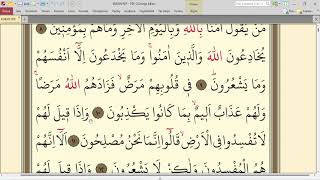 مَنْ يَقُولُ اٰمَنَّا بِاللّٰهِ وَبِالْيَوْمِ الْاٰخِرِ وَمَا هُمْ بِمُؤْمِنِينَ ۘ ٨
يُخَادِعُونَ اللّٰهَ وَالَّذِينَ اٰمَنُوا ۚ وَمَا يَخْدَعُونَ اِلَّٓا اَنْفُسَهُمْ
وَمَا يَشْعُرُونَ ۜ ٩ فِي قُلُوبِهِمْ مَرَضٌ فَزَادَهُمُ اللّٰهُ مَرَضًا ۚ
وَلَهُمْ عَذَابٌ اَلِيمٌ بِمَا كَانُوا يَكْذِبُونَ ١٠ وَاِذَا قِيلَ لَهُمْ
لَا تُفْسِدُوا فِي الْاَرْضِ ۙ قَالُٓوا اِنَّمَا نَحْنُ مُصْلِحُونَ ١١ اَلَٓا اِنَّهُمْ
هُمُ الْمُفْسِدُونَ وَلٰكِنْ لَا يَشْعُرُونَ ١٢ وَاِذَا قِيلَ لَهُمْ